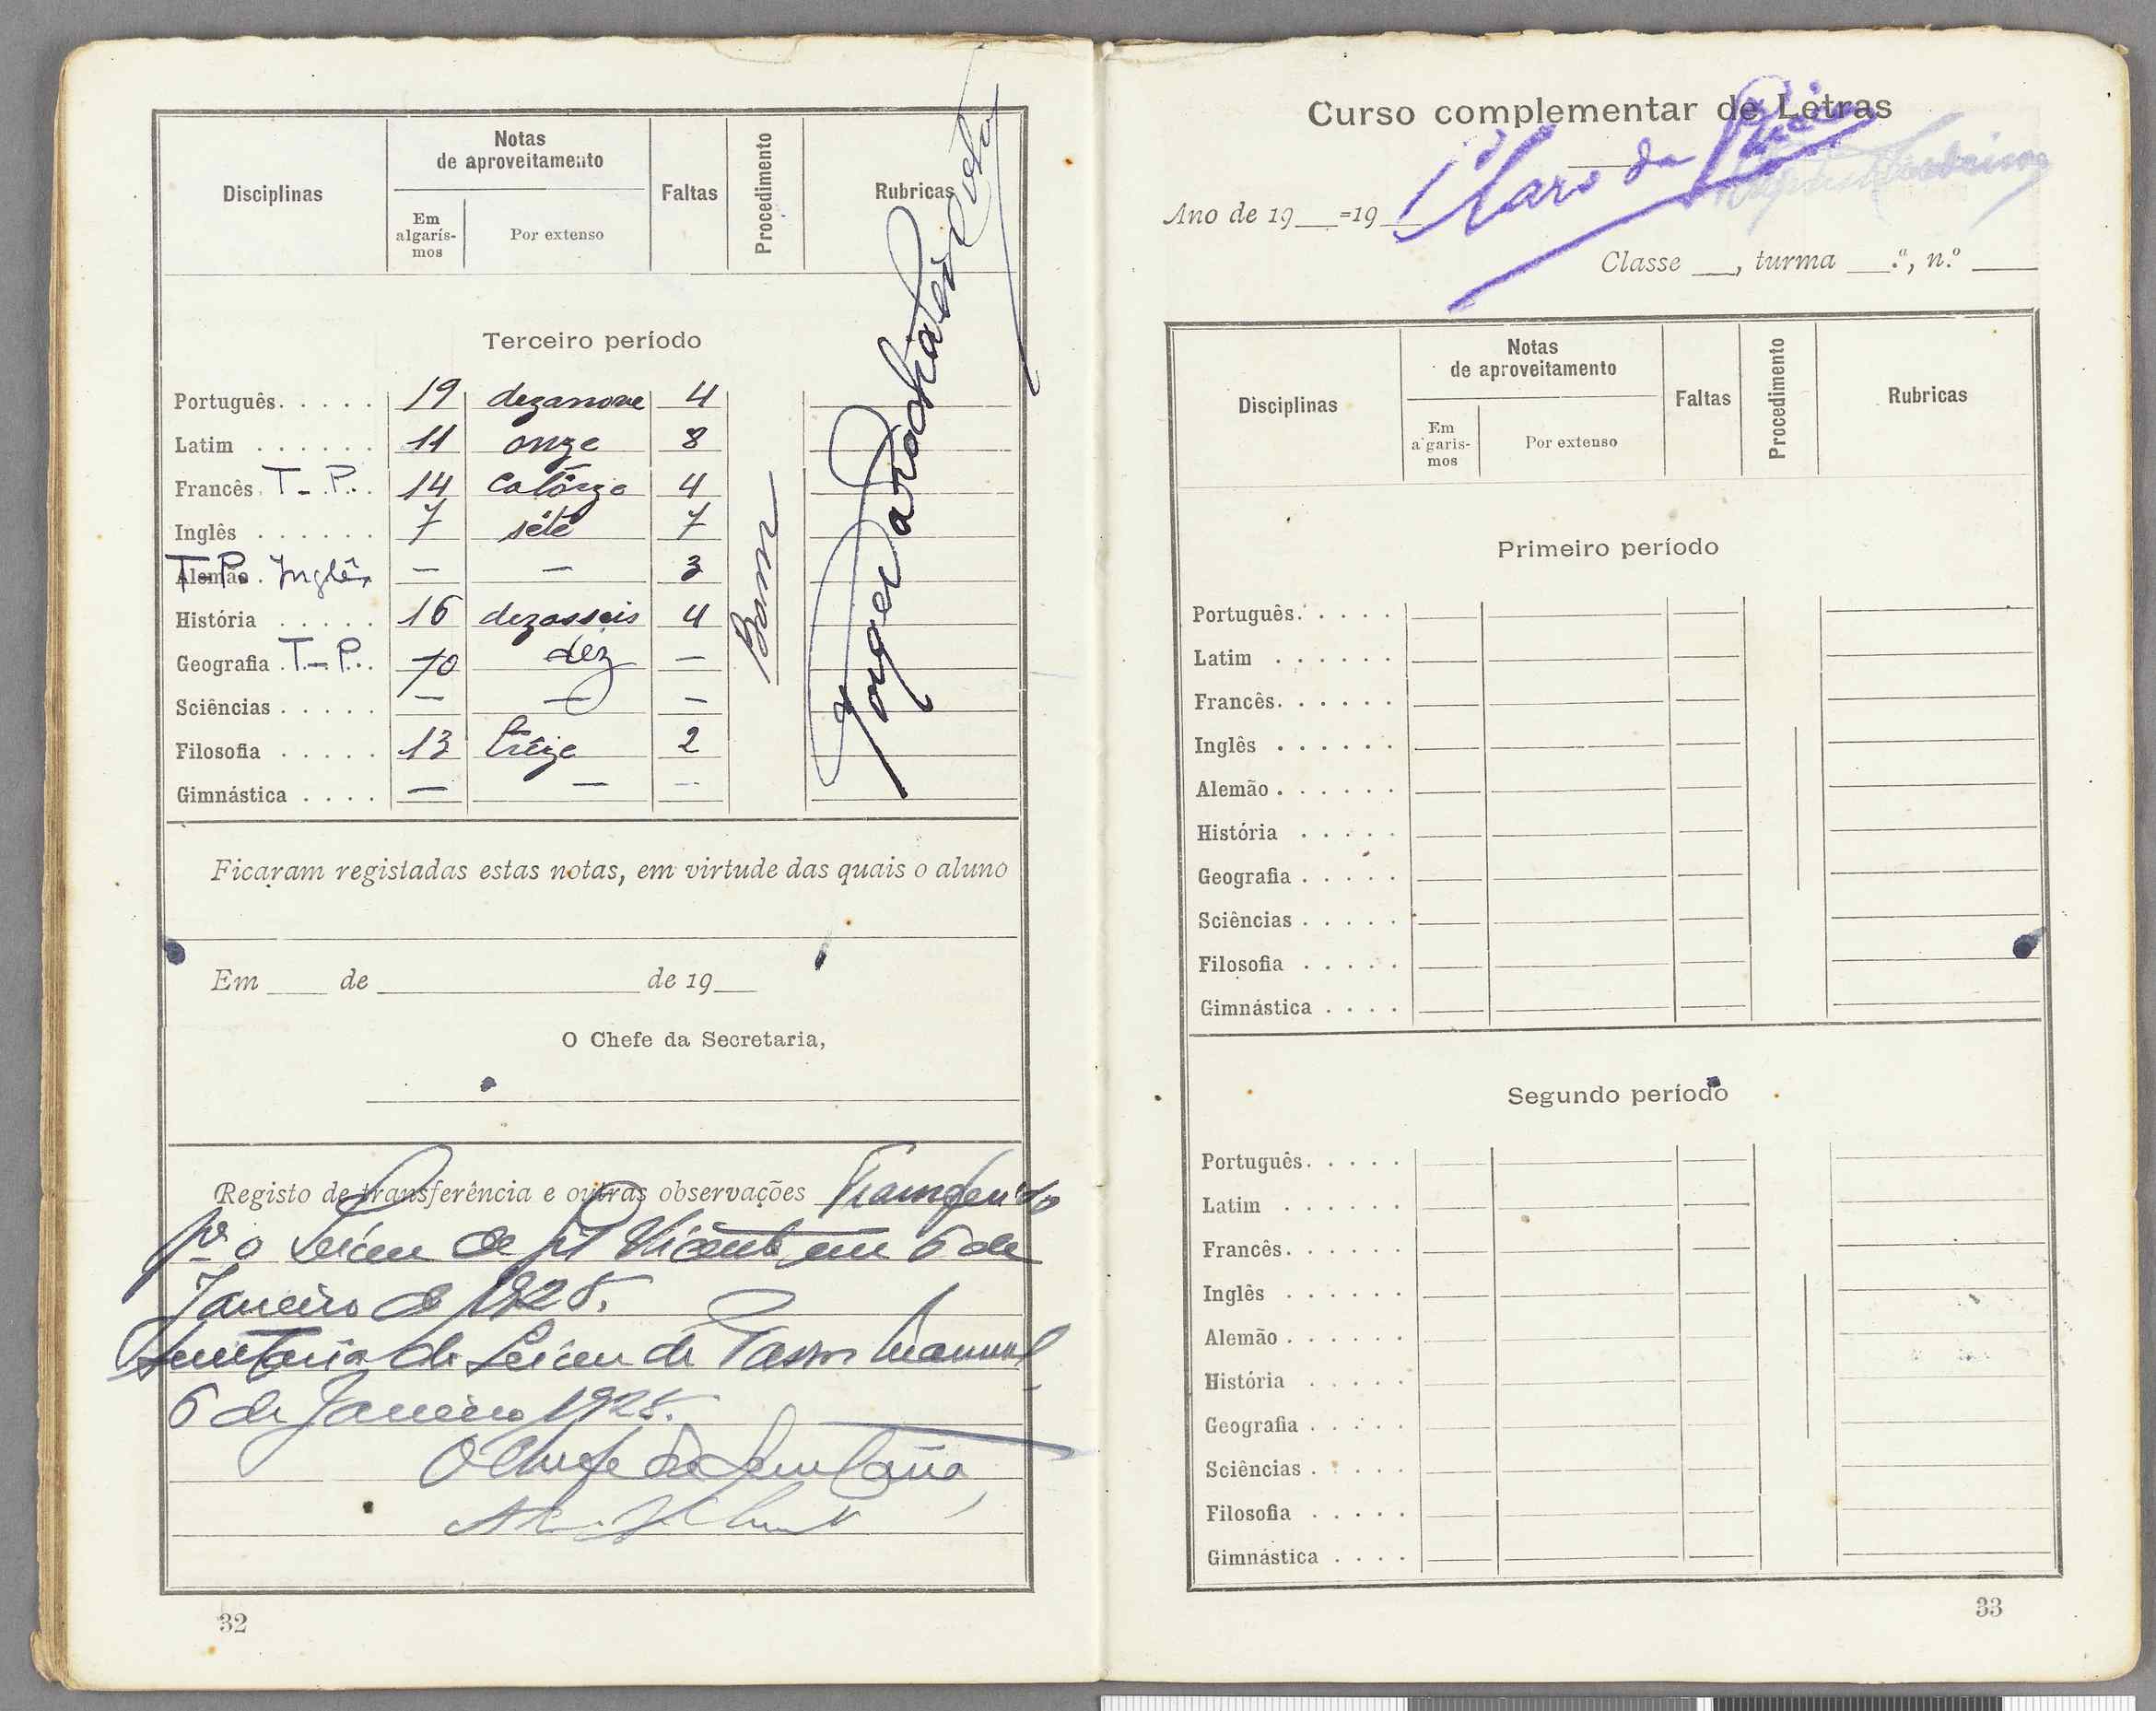 Disciplinas
Notas
de aproveitamento
Em
algarís-
mos
Por extenso
Faltas
Procedimento
Rubricas
Terceiro período
Português. . . . . 19 dezanove 4
Latim . . . . . . 11 onze 8
Francês. T-P. . . 14 catorze 4
Inglês . . . . . . 7 sete 7
Alemão . T-P. Inglês — — 3
História . . . . . 16 dezasseis 4
Geografia . T-P. . . 10 dez —
Sciências . . . . . — — —
Filosofia . . . . . 13 treze 2
Gimnástica . . . . — — —
Bom
Ficaram registadas estas notas, em virtude das quais o aluno
Em ____ de ____ de 19__
O Chefe da Secretaria,
Registo de transferência e outras observações Transferido
pª o Liceu de Gil Vicente em 6 de
Janeiro de 1928.
Secretaria do Liceu de Passos Manuel
6 de Janeiro 1928.
O Chefe da Secretaria,
32
Curso complementar de Letras
Ano de 19__=19__
Classe __, turma __.ª, n.º ___
Disciplinas
Notas
de aproveitamento
Em
a garis-
mos
Por extenso
Faltas
Procedimento
Rubricas
Primeiro período
Português. . . . .
Latim . . . . . .
Francês. . . . . .
Inglês . . . . . .
Alemão . . . . . .
História . . . . .
Geografia . . . . .
Sciências . . . . .
Filosofia . . . . .
Gimnástica . . . .
Segundo período
Português. . . . .
Latim . . . . . .
Francês. . . . . .
Inglês . . . . . .
Alemão . . . . . .
História . . . . .
Geografia . . . . .
Sciências . . . . .
Filosofia . . . . .
Gimnástica . . . .
33